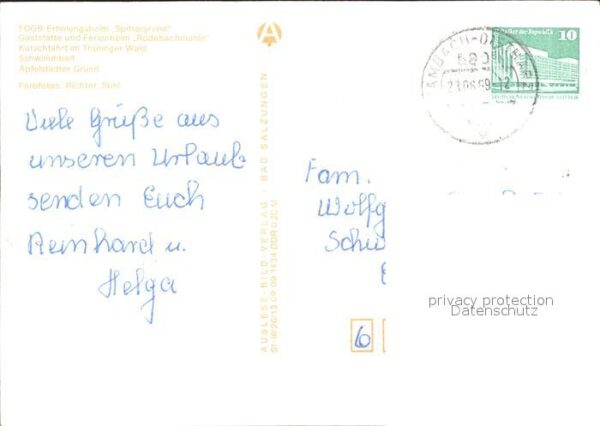 FDGB-Erholungsheim „Spittergrund“
Gaststätte und Ferienheim „Rodebachmühle“
Kutschfahrt im Thüringer Wald
Schwimmbad
Apfelstädter Grund
Farbfotos: Richter, Suhl
Viele Grüße aus
unseren Urlaub
senden Euch
Reinhard u.
Helga
AUSLESE-BILD-VERLAG · BAD SALZUNGEN
Palast der Republik 10
TAMBACH-DIETHARZ
23.06.89
Fam.
Wolfg
Schu
6
privacy protection
Datenschutz